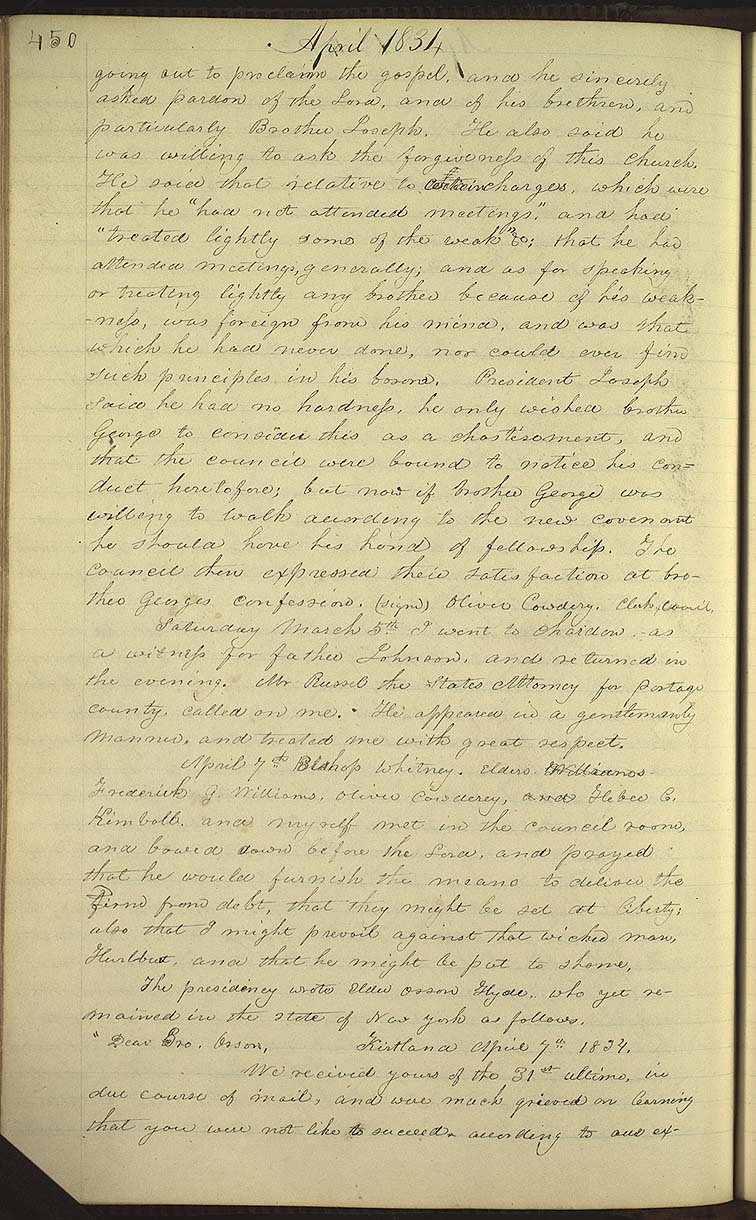 450
April 1834
going out to proclaim the gospel, and he sincerely
asked pardon of the Lord, and of his brethren, and
particularly Brother Joseph. He also said he
was willing to ask the forgiveness of this church.
He said that relative to certain charges, which were
that he "had not attended meetings," and had
"treated lightly some of the weak" &c; that he had
attended meetings, generally; and as for speaking
or treating lightly any brother because of his weak-
-ness, was foreign from his mind, and was that
which he had never done, nor could ever find
such principles in his bosom. President Joseph
said he had no hardness, he only wished brother
George to consider this as a chastisement, and
that the council were bound to notice his con=
duct heretofore; but now if brother George was
willing to walk according to the new covenant
he should have his hand of fellowship. The
council then expressed their satisfaction at bro-
ther Georges confession. (signed) Oliver Cowdery. Clerk, Council,
Saturday March 5th I went to Chardon, as
a witness for father Johnson, and returned in
the evening. Mr Russel the States Attorney for Portage
county called on me. He appeared in a gentlemanly
manner, and treated me with great respect.
April 7th Bishop Whitney. Elders Williams
Frederick G. Williams, Oliver Cowderey, and Heber C.
Kimball, and myself met in the council room,
and bowed down before the Lord, and prayed
that he would furnish the means to deliver the
Firm from debt, that they might be set at liberty;
also that I might prevail against that wicked man,
Hurlbut, and that he might be put to shame,
The presidency wrote Elder Orson Hyde, who yet re-
mained in the state of New York as follows.
"Dear Bro. Orson, Kirtland April 7th 1834.
We received yours of the 31st ultimo, in
due course of mail, and were much grieved on learning
that you were not like to succeed according to our ex-